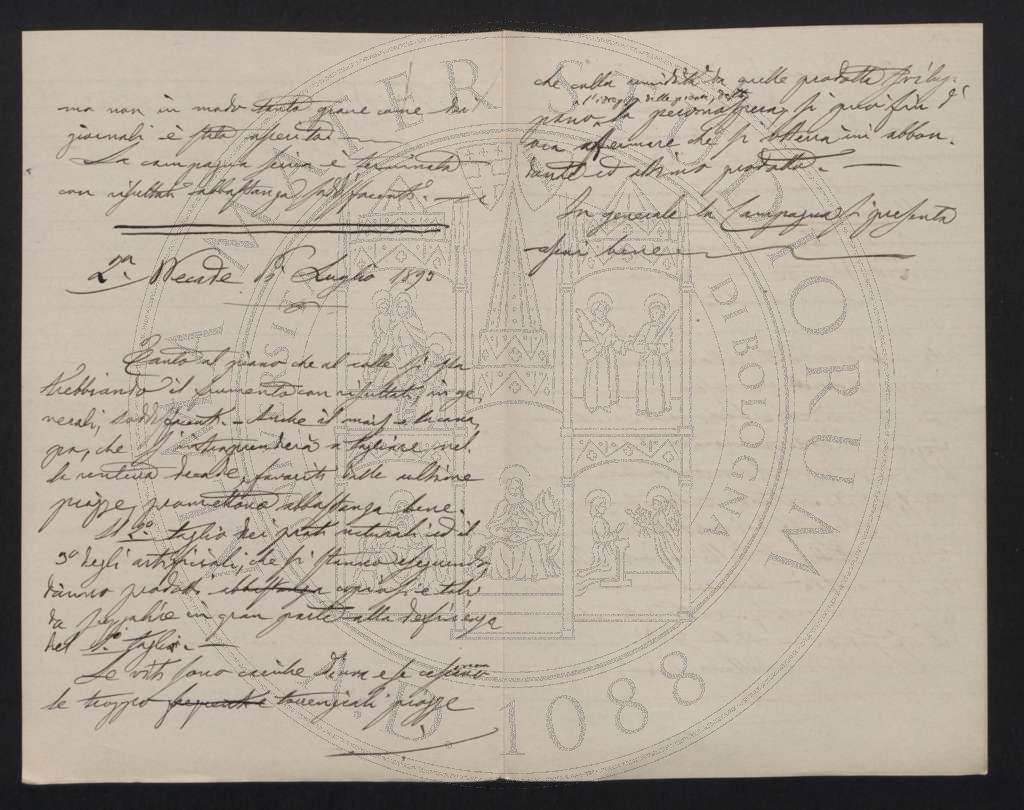 ma non in modo tanto grave come dai
giornali è stato asserito. —
La campagna serica è terminata
con risultati abbastanza soddisfacenti. —
2ª Decade di Luglio 1893
Tanto al piano che al colle si sta
trebbiando il frumento con risultati, in ge,
nerali, soddisfacenti. — Anche il mais e la cana,
pa, che si intraprenderà a tagliare nel,
la ventura decade, favoriti dalle ultime
piogge, promettono abbastanza bene.
Il 2º taglio dei prati naturali ed il
3º degli artificiali, che si stanno eseguendo,
danno prodotti abbastanza copiosi e tali
da supplire in gran parte alla deficienza
del 1º taglio. —
Le viti sono cariche d'uva e se cesseranno
le troppo frequenti torrenziali piogge
che colla umidità da quelle prodotta svilup,
pano la peronospora, si può fin d'
a l'irrigaz delle piante, detta
ora affermare che si otterrà un abbon,
dante ed ottimo prodotto. —
In generale la Campagna si presenta
assai bene —
ALMA MATER STUDIORUM
UNIVERSITÀ DI BOLOGNA
A.D. 1088